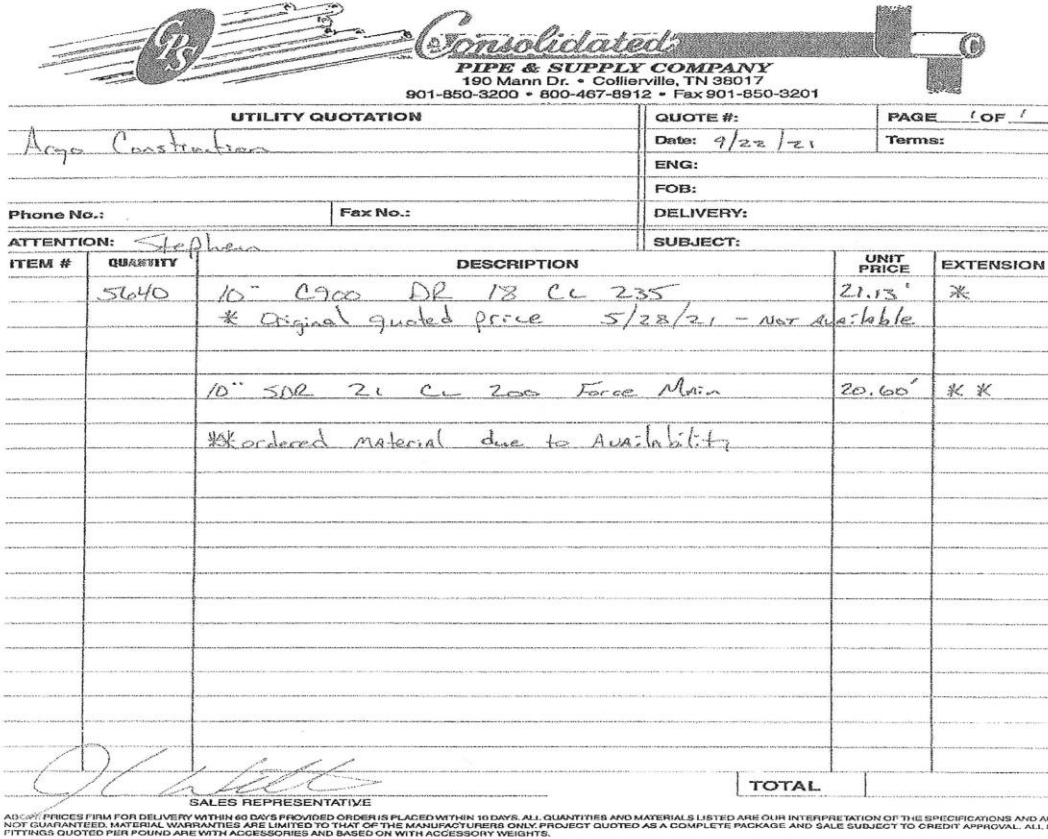 CPS
Consolidated
PIPE & SUPPLY COMPANY
190 Mann Dr. • Collierville, TN 38017
901-850-3200 • 800-467-8912 • Fax 901-850-3201
UTILITY QUOTATION
QUOTE #:
PAGE 1 OF 1
Argo Construction
Date: 9/22/21
Terms:
ENG:
FOB:
Phone No.:
Fax No.:
DELIVERY:
ATTENTION: Stephen
SUBJECT:
ITEM # QUANTITY DESCRIPTION UNIT PRICE EXTENSION
5640 10" C900 DR 18 CL 235 21.13' *
* Original quoted price 5/28/21 - Not Available
10" SDR 21 CL 200 Force Main 20.60' * *
** ordered material due to Availability
TOTAL
SALES REPRESENTATIVE
PRICES FIRM FOR DELIVERY WITHIN 60 DAYS PROVIDED ORDER IS PLACED WITHIN 10 DAYS. ALL QUANTITIES AND MATERIALS LISTED ARE OUR INTERPRETATION OF THE SPECIFICATIONS AND
NOT GUARANTEED. MATERIAL WARRANTIES ARE LIMITED TO THAT OF THE MANUFACTURERS ONLY. PROJECT QUOTED AS A COMPLETE PACKAGE AND SALE SUBJECT TO CREDIT APPROVAL. ALL
FITTINGS QUOTED PER POUND ARE WITH ACCESSORIES AND BASED ON WITH ACCESSORY WEIGHTS.